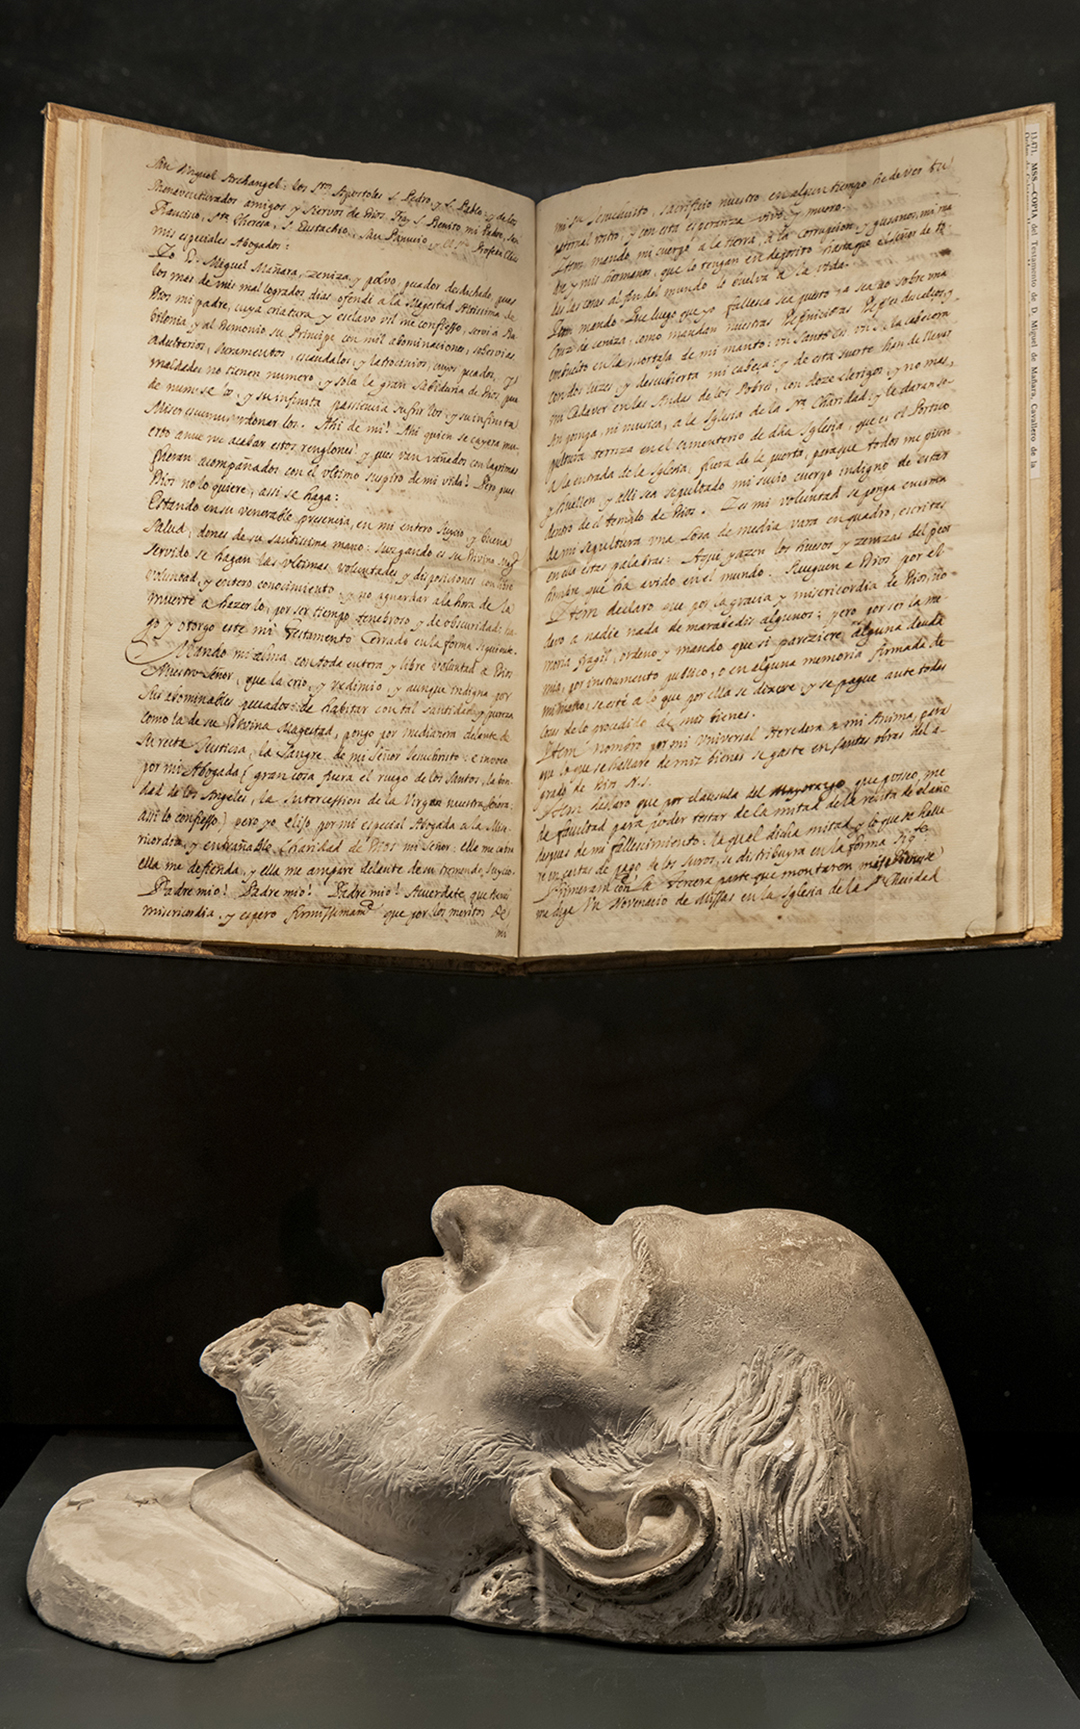 San Miguel Archangel: los Stos Apostoles S. Pedro, y S. Pablo: y de los
Bienaventurados amigos y siervos de Dios, S. Benito mi Padre, San
Francisco, Sta Theresa, S. Eustachio, San Panucio, Profeta Elias
mis especiales Abogados:
Yo D. Miguel Mañara, zeniza, y polvo, pecador desdichado, pues
los mas de mis mal logrados dias ofendi a la Magestad Altissima de
Dios mi padre, cuya criatura y esclavo vil me confiesso, servi a Ba-
bilonia, y al Demonio su Principe con mil abominaciones, sobervias,
adulterios, Juramentos, escandalos, y latrocinios; cuyos pecados, y
maldades no tienen numero, y sola la gran Sabiduria de Dios, pue
de numerarlos, y su infinita paciencia sufrirlos, y su infinita
Misericordia perdonarlos. Ahi de mi! Ahi quien se cayera mu-
erto antes de acabar estos renglones! y pues van vañados con lagrimas
fueran acompañados con el vltimo suspiro de mi vida! Pero pues
Dios no lo quiere, assi se haga:
Estando en su venerable presencia, en mi entero Juycio, y buena
salud, dones de su santissima mano: Juzgando es su Divina Magd
servido se hagan las vltimas voluntades y disposiciones con libre
voluntad, y entero conocimiento, y no aguardar a la hora de la
muerte a hazerlo, por ser tiempo tenebroso, y de obscuridad: ha-
go y otorgo este mi Testamento Cerrado en la forma siguiente.
Mando mi alma con toda entera, y libre voluntad a Dios
Nuestro Señor, que la crio, y redimio, y aunque indigna por
sus abominables pecados de habitar con tal santidad y pureza
como la de su Divina Magestad, pongo por medianera delante de
su recta Justicia, la Sangre de mi Señor Jesuchristo: e invoco
por mi Abogada (gran cosa fuera el ruego de los Santos, la bon-
dad de los Angeles, la Intercession de la Virgen nuestra señora:
assi lo confiesso) pero yo elijo por mi especial Abogada a la Mise-
ricordia, y entrañable Charidad de Dios mi Señor: ella me cubra
ella me defienda, y ella me ampare delante de su tremendo Juycio.
Padre mio! Padre mio! Padre mio! Acuerdate que tienes
misericordia, y espero firmissimamte que por los meritos de
mi
mi Sr Jesuchristo, sacrificio nuestro en algun tiempo he de ver tu
paternal rostro, y con esta esperanza vivo, y muero.
Item mando, mi cuerpo a la tierra, a la corrupcion, y gusanos, mi ma-
dre y mis hermanos, que lo tengan en deposito hasta que el Señor de to-
das las cosas al fin del mundo lo buelva a la vida.
Item mando que luego que yo fallesca sea puesto sobre vna
Cruz de zeniza, como mandan nuestras Difiniciones Pies descalzos, y
embuelto en la mortaja de mi manto: vn Santo cto en la cabezera
con dos luzes, y descubierta mi cabeza: y de esta suerte han de llevar
mi Cadaver en las Andas de los Pobres, con doze clerigos, y no mas,
sin pompa, ni musica, a la Iglesia de la Sta Charidad, y le daran se-
pultura terriza en el cimenterio de dha Iglesia, que es el Portico
a la entrada de la Iglesia, fuera de la puerta, paraque todos me pisen
y huellen, y alli sea sepultado mi sucio cuerpo indigno de estar
dentro de el templo de Dios. Y es mi voluntad se ponga encima
de mi sepultura vna Losa de media vara en quadro, escritas
en ella estas palabras: Aqui yazen los huesos y zenizas del peor
hombre que ha avido en el mundo. Rueguen a Dios por el.
Item declaro que por la gracia y misericordia de Dios, no
devo a nadie nada de maravedis algunos: pero por ser la me-
moria fragil, ordeno y mando que si pareziere alguna deuda
mia, por instrumento publico, o en alguna memoria firmada de
mi mano, se esté a lo que por ella se dixere, y se pague ante todas
cosas de lo procedido de mis bienes.
Item Nombro por mi Universal Heredera a mi Anima, para
que lo que se hallare de mis bienes se gaste en santas obras del a-
grado de Dios N.S.
Item declaro que por clausula del Mayorazgo que posseo, me
da facultad para poder testar de la mitad de la renta de el año
despues de mi fallecimiento, la qual dicha mitad, y lo que se halla-
re en cartas de pago de los Juros, se distribuyra en la forma sigte
Primeramte con la tercera parte que montaron
me diga Vn Novenario de Missas en la Iglesia de la Sta Charidad
13.671. MSS.—COPIA del Testamento de D. Miguel de Mañara, Cavallero de la